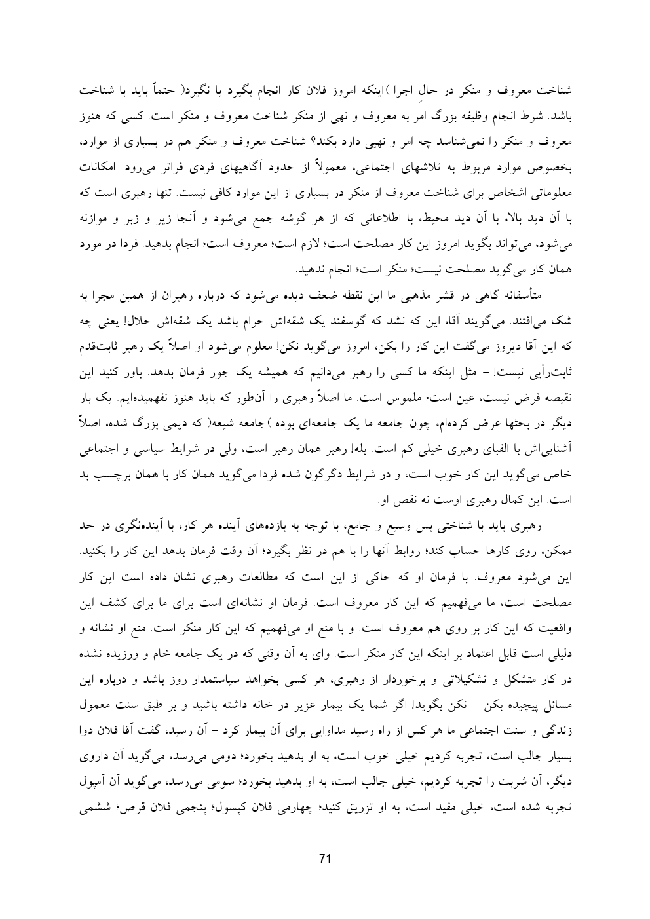 شناخت معروف و منکر در حال اجرا )اینکه امروز فلان کار انجام بگیرد یا نگیرد( حتماً باید با شناخت
باشد. شرط انجام وظیفه بزرگ امر به معروف و نهی از منکر شناخت معروف و منکر است. کسی که هنوز
معروف و منکر را نمی‌شناسد چه امر و نهیی دارد بکند؟ شناخت معروف و منکر هم در بسیاری از موارد،
بخصوص موارد مربوط به تلاشهای اجتماعی، معمولاً از حدود آگاهیهای فردی فراتر می‌رود. امکانات
معلوماتی اشخاص برای شناخت معروف از منکر در بسیاری از این موارد کافی نیست. تنها رهبری است که
با آن دید بالا، با آن دید محیط، با اطلاعاتی که از هر گوشه جمع می‌شود و آنجا زیر و زبر و موازنه
می‌شود، می‌تواند بگوید امروز این کار مصلحت است؛ لازم است؛ معروف است؛ انجام بدهید. فردا در مورد
همان کار می‌گوید مصلحت نیست؛ منکر است؛ انجام ندهید.
متأسفانه گاهی در قشر مذهبی ما این نقطه ضعف دیده می‌شود که درباره رهبران از همین مجرا به
شک می‌افتند. می‌گویند آقا، این که نشد که گوسفند یک شقه‌اش حرام باشد یک شقه‌اش حلال! یعنی چه
که این آقا دیروز می‌گفت این کار را بکن، امروز می‌گوید نکن! معلوم می‌شود او اصلاً یک رهبر ثابت‌قدم
ثابت‌رأیی نیست. - مثل اینکه ما کسی را رهبر می‌دانیم که همیشه یک جور فرمان بدهد. باور کنید این
نقیصه فرض نیست، عین است؛ ملموس است. ما اصلاً رهبری را آن‌طور که باید هنوز نفهمیده‌ایم. یک بار
دیگر در بحثها عرض کرده‌ام، چون جامعه ما یک جامعه‌ای بوده )جامعه شیعه( که دیمی بزرگ شده، اصلاً
آشنایی‌اش با الفبای رهبری خیلی کم است. بله! رهبر همان رهبر است، ولی در شرایط سیاسی و اجتماعی
خاص می‌گوید این کار خوب است، و در شرایط دگرگون شده فردا می‌گوید همان کار با همان برچسب بد
است. این کمال رهبری اوست نه نقص او.
رهبری باید با شناختی بس وسیع و جامع، با توجه به بازده‌های آینده هر کار، با آینده‌نگری در حد
ممکن، روی کارها حساب کند؛ روابط آنها را با هم در نظر بگیرد؛ آن وقت فرمان بدهد این کار را بکنید.
این می‌شود معروف. با فرمان او که حاکی از این است که مطالعات رهبری نشان داده است این کار
مصلحت است، ما می‌فهمیم که این کار معروف است. فرمان او نشانه‌ای است برای ما برای کشف این
واقعیت که این کار بر روی هم معروف است. و با منع او می‌فهمیم که این کار منکر است. منع او نشانه و
دلیلی است قابل اعتماد بر اینکه این کار منکر است. وای به آن وقتی که در یک جامعه خام و ورزیده نشده
در کار متشکل و تشکیلاتی و برخوردار از رهبری، هر کسی بخواهد سیاستمدار روز باشد و درباره این
مسائل پیچیده بکن - نکن بگوید! اگر شما یک بیمار عزیز در خانه داشته باشید و بر طبق سنت معمول
زندگی و سنت اجتماعی ما هر کس از راه رسید مداوایی برای آن بیمار کرد - آن رسید، گفت آقا فلان دوا
بسیار جالب است، تجربه کردیم خیلی خوب است، به او بدهید بخورد؛ دومی می‌رسد، می‌گوید آن داروی
دیگر، آن شربت را تجربه کردیم، خیلی جالب است، به او بدهید بخورد؛ سومی می‌رسد، می‌گوید آن آمپول
تجربه شده است، خیلی مفید است، به او تزریق کنید؛ چهارمی فلان کپسول؛ پنجمی فلان قرص؛ ششمی
71